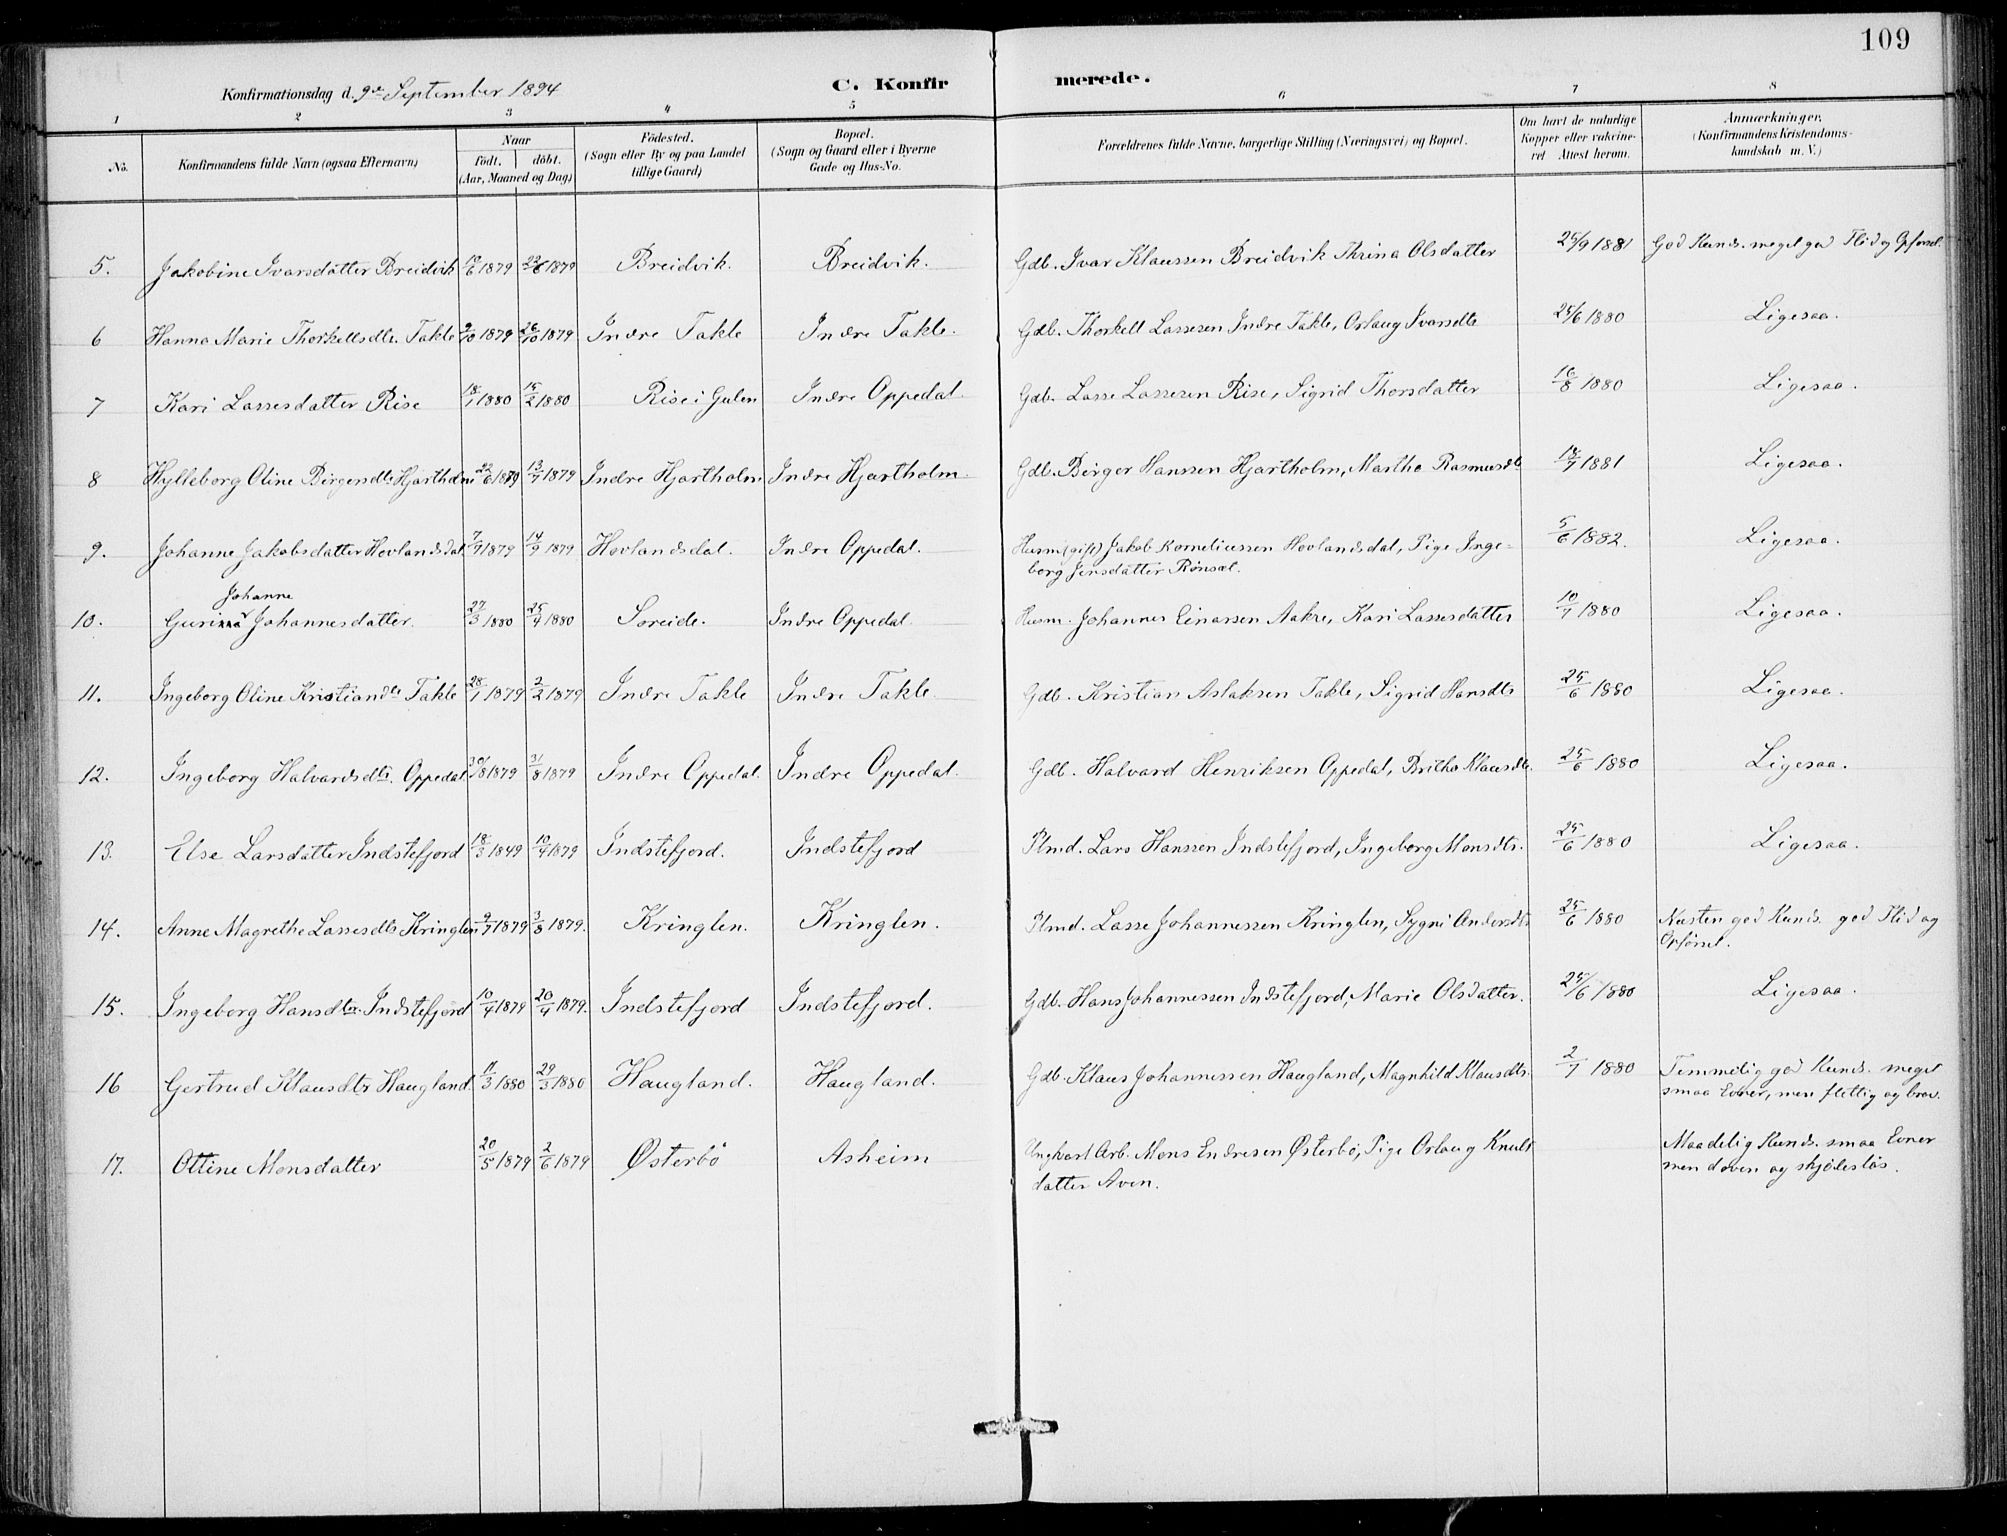 109
Konfirmationsdag d. 9de September 1894
C. Konfir merede.
1 2 3 4 5 6 7 8
No.
Konfirmandens fulde Navn (ogsaa Efternavn)
Naar
födt. döbt.
(Aar, Maaned og Dag)
Födested.
(Sogn eller By og paa Landet
tillige Gaard)
Bopæl.
(Sogn og Gaard eller i Byerne
Gade og Hus-No.
Forældrenes fulde Navne, borgerlige Stilling (Næringsvei) og Bopæl.
Om havt de naturlige
Kopper eller vakcine-
ret Attest herom.
Anmærkninger.
(Konfirmandens Kristendoms-
kundskab m. V.)
5. Jakobine Ivarsdatter Breidvik /6 1879 22/6 1879 Breidvik. Breidvik. Gdb. Ivar Klaussen Breidvik Thrina Olsdatter 25/9 1881 God Kunds. meget god Flid og Opførsel.
6 Hanna Marie Thorkellsdtr. Takle 9/10 1879 26/10 1879 Indre Takle Indre Takle. Gdb. Thorkell Lassesen Indre Takle, Orlaug Ivarsdtr 25/6 1880 Ligesaa.
7 Kari Lassesdatter Rise 18/1 1880 15/2 1880 Rise i Gulen Indre Oppedal. Gdb. Lasse Lassesen Rise, Sigrid Thorsdatter 16/8 1880 Ligesaa.
8 Hylleborg Oline Birgersdtr Hjartholm /6 1879 13/7 1879 Indre Hjartholm Indre Hjartholm. Gdb. Birger Hanssen Hjartholm, Martha Rasmusdtr 18/7 1881 Ligesaa.
9. Johanne Jakobsdatter Hovlandsdal 7/9 1879 14/9 1879 Hovlandsdal. Indre Oppedal. Husm (gift) Jakob Korneliussen Hovlandsdal, Pige Inge-
borg Jensdatter Rønsæt. 5/6 1882. Ligesaa.
Johanne
10. Gurinna Johannesdatter. 27/3 1880 25/4 1880 Søreide. Indre Oppedal. Husm. Johannes Einarsen Aakre, Kari Lassesdatter 10/7 1880 Ligesaa.
11. Ingeborg Oline Kristiandtr Takle 28/1 1879 2/2 1879 Indre Takle Indre Takle Gdb. Kristian Aslaksen Takle, Sigrid Hansdtr 25/6 1880 Ligesaa.
12. Ingeborg Halvardsdtr. Oppedal 20/8 1879 31/8 1879 Indre Oppedal. Indre Oppedal. Gdb. Halvard Henriksen Oppedal, Britha Klausdtr. 25/6 1880 Ligesaa.
13. Else Larsdatter Indstefjord 18/3 1849 10/4 1879 Indstefjord. Indstefjord Plmd. Lars Hanssen Indstefjord, Ingeborg Monsdtr. 25/6 1880 Ligesaa.
14. Anne Magrethe Lassesdtr Kringlen 9/7 1879 3/8 1879. Kringlen. Kringlen. Plmd. Lasse Johannessen Kringlen, Sygni Andersdtr 25/6 1880 Næsten god Kunds. god Flid og
Opførsel.
15. Ingeborg Hansdtr. Indstefjord 10/4 1879 20/4 1879. Indstefjord Indstefjord. Gdb. Hans Johannessen Indstefjord, Marie Olsdatter. 25/6 1880 Ligesaa.
16 Gertrud Klausdtr Haugland 11/3 1880 29/3 1880 Haugland. Haugland. Gdb. Klaus Johannessen Haugland, Magnhild Klausdtr. 2/7 1880 Temmelig god Kunds. meget
smaa Evner, men flittig og brav.
17. Ottine Monsdatter 20/5 1879 2/6 1879 Østerbö Asheim Ungkarl Arb. Mons Endresen Østerbö, Pige Orlaug Knuts
datter Aven. Maadelig Kunds. smaa Evner
men doven og skjødesløs.